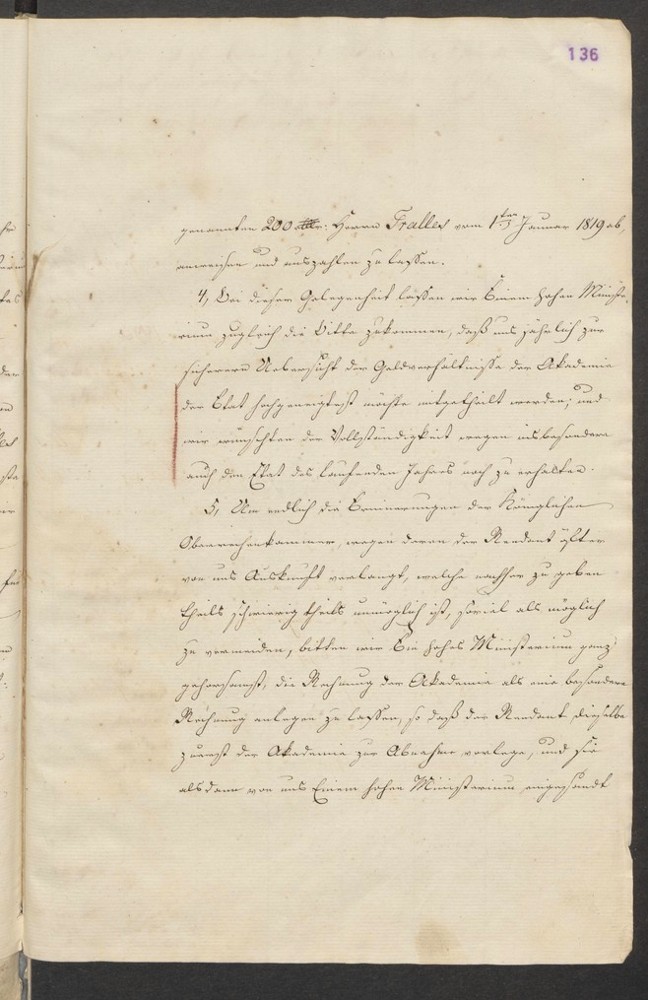 136
genannten 200 Thlr: Herrn Tralles vom 1ten Januar 1819 ab,
anweisen und auszahlen zu lassen.
4, Bei dieser Gelegenheit lassen wir Einem hohen Ministe-
rium zugleich die Bitte zukommen, daß uns jährlich zur
sicherern Uebersicht der Geldverhältnisse der Akademie
der Etat hochgeneigtest möchte mitgetheilt werden; und
wir wünschten der Vollständigkeit wegen insbesondere
auch den Etat des laufenden Jahres noch zu erhalten.
5, Um endlich die Erinnerungen der Königlichen
Oberrechenkammer, wegen deren der Rendant öfter
von uns Auskunft verlangt, welche nachher zu geben
theils schwierig theils unmöglich ist, soviel als möglich
zu vermeiden, bitten wir Ein hohes Ministerium ganz
gehorsamst, die Rechnung der Akademie als eine besondere
Rechnung anlegen zu lassen, so daß der Rendant dieselbe
zuerst der Akademie zur Abnahme vorlege, und sie
alsdann von uns Einem hohen Ministerium eingesandt